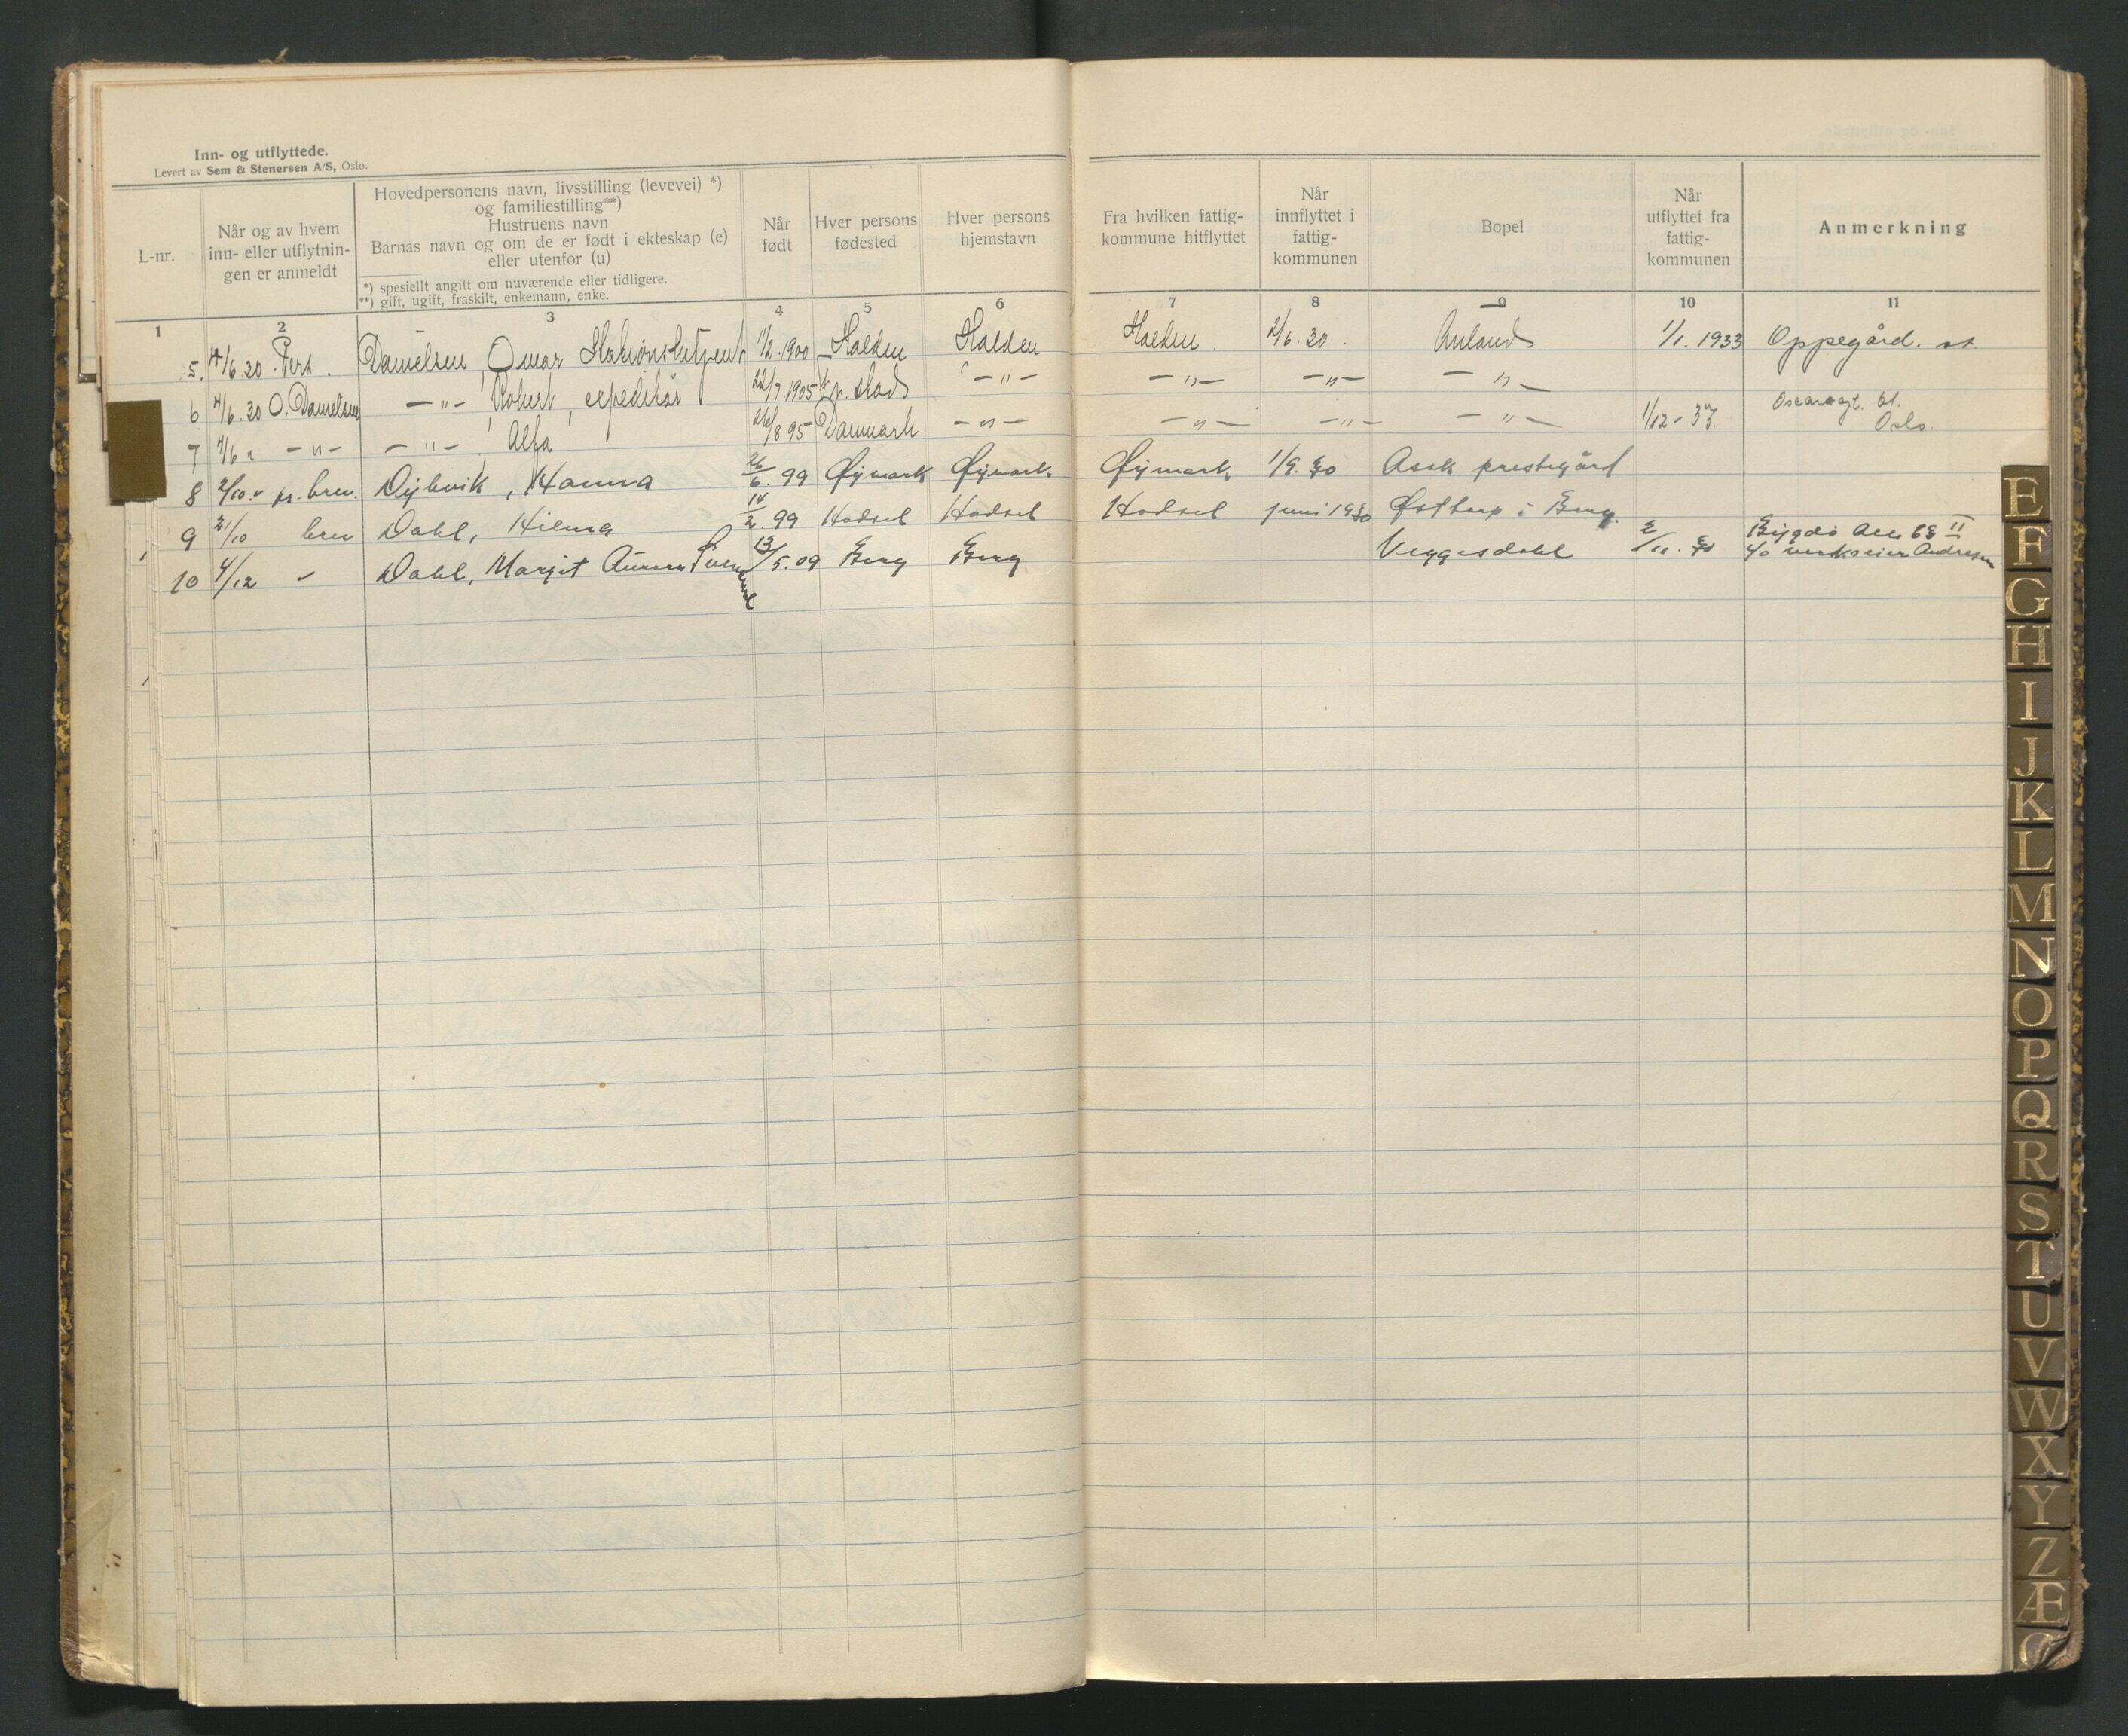 Inn- og utflyttede.
Levert av Sem & Stenersen A/S, Oslo.
L-nr.
Når og av hvem
inn- eller utflytnin-
gen er anmeldt
Hovedpersonens navn, livsstilling (levevei) *)
og familiestilling**)
Hustruens navn
Barnas navn og om de er født i ekteskap (e)
eller utenfor (u)
*) spesiellt angitt om nuværende eller tidligere.
**) gift, ugift, fraskilt, enkemann, enke.
Når
født
Hver persons
fødested
Hver persons
hjemstavn
Fra hvilken fattig-
kommune hitflyttet
Når
innflyttet i
fattig-
kommunen
Bopel
Når
utflyttet fra
fattig-
kommunen
Anmerkning
1 2 3 4 5 6 7 8 9 10 11
5. 4/6 30 Pers. Danielsen, Omar 11/2.1900 Halden Halden Halden. 2/6.30. 1/1.1933 Oppegård. st.
6 4/6.30 O. Danielsen —"— Robert, expeditør 22/7.1905 Fr.stad —"— —"— —"— —"—
7 4/6 " —"— —"— Alfa 26/8.95 Danmark —"— —"— —"— —"— 1/12-37. Oscarsgt. 61. Oslo.
8 2/10 " pr. brev. Dybvik, Hanna 26/6.99 Øymark Øymark Øymark 1/9.30 Asak prestegård
9 21/10 brev Dahl, Hilma 14/2.99 Hadsel Hadsel Hadsel juni 1930 Østtorp i Berg.
10 4/12 " Dahl, Margit 13/5.09 Berg Berg Veggesdahl 2/11.30 Bygdö Alle 63 II
c/o verkseier Andresen
E
F
G
H
I
J
K
L
M
N
O
P
Q
R
S
T
U
V
W
X
Y
Z
Æ